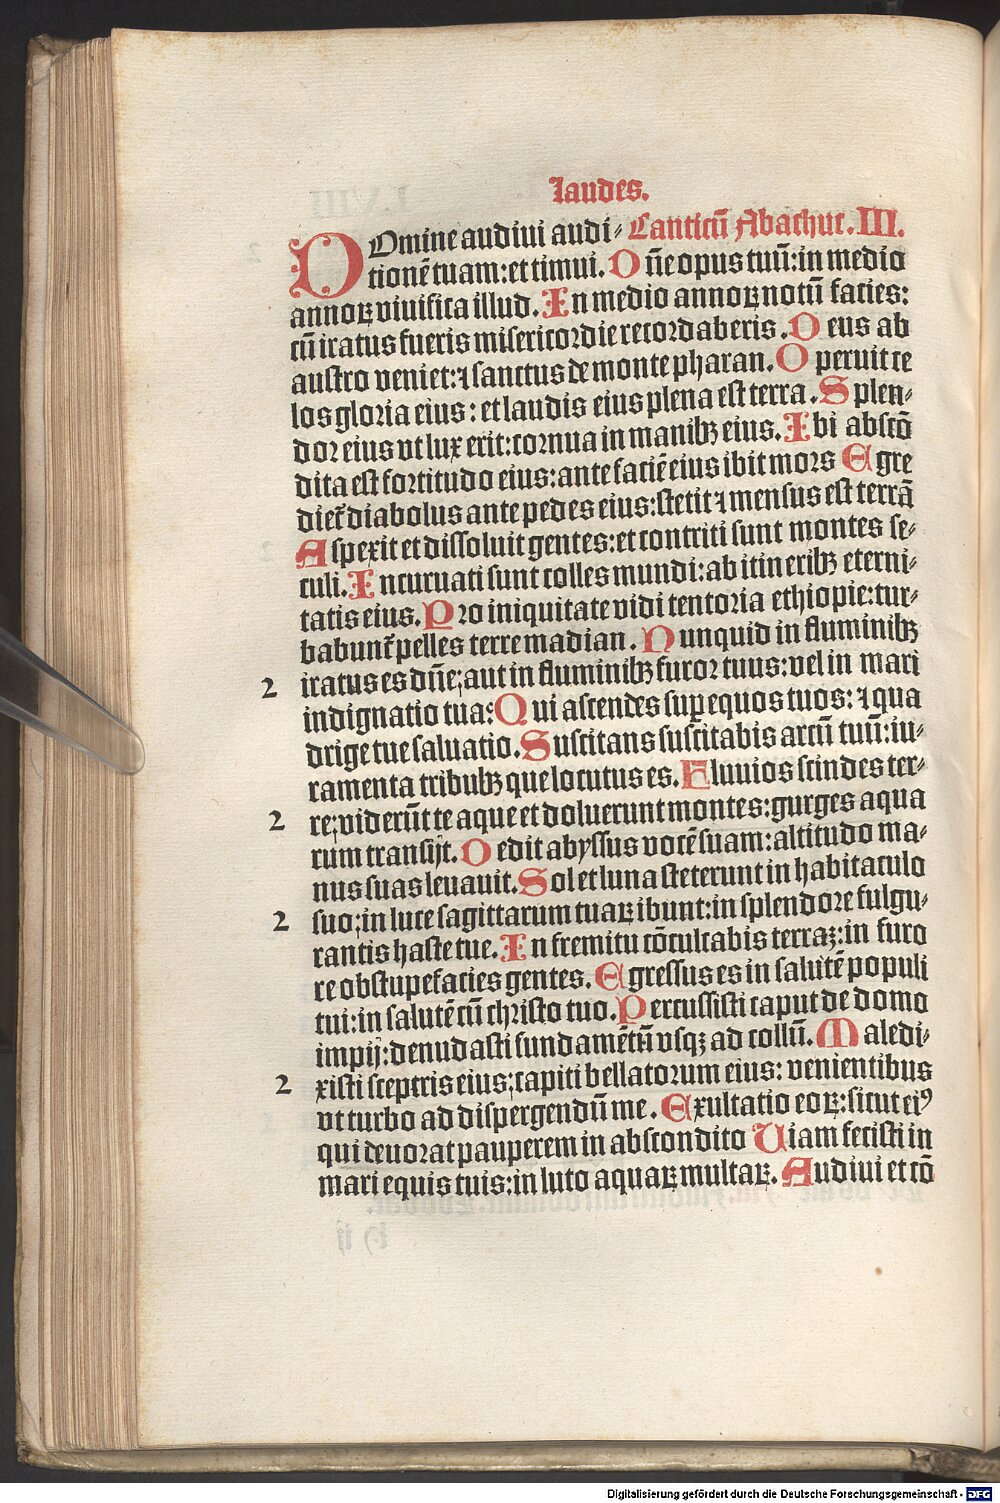 laudes.
DOmine audiui audi⸗ Canticū Abachuc. III.
tionē tuam: et timui. Dn̄e opus tuū: in medio
annoꝝ viuifica illud. In medio annoꝝ notū facies:
cū iratus fueris misericordie recordaberis. Deus ab
austro veniet: ⁊ sanctus de monte pharan. Operuit ce
los gloria eius: et laudis eius plena est terra. Splen⸗
dor eius vt lux erit: cornua in manibꝫ eius. Ibi abscō
dita est fortitudo eius: ante faciē eius ibit mors Egre
diet᷑ diabolus ante pedes eius: stetit ⁊ mensus est terrā
Aspexit et dissoluit gentes: et contriti sunt montes se⸗
culi. Incuruati sunt colles mundi: ab itineribꝫ eterni⸗
tatis eius. Pro iniquitate vidi tentoria ethiopie: tur⸗
babunt᷑ pelles terre madian. Nunquid in fluminibꝫ
2 iratus es dn̄e; aut in fluminibꝫ furor tuus: vel in mari
indignatio tua: Qui ascendes suꝑ equos tuos: ⁊ qua
drige tue saluatio. Suscitans suscitabis arcū tuū: iu⸗
ramenta tribubꝫ que locutus es. Fluuios scindes ter⸗
2 re; viderūt te aque et doluerunt montes: gurges aqua
rum transijt. Dedit abyssus vocē suam: altitudo ma⸗
nus suas leuauit. Sol et luna steterunt in habitaculo
2 suo; in luce sagittarum tuaꝝ ibunt: in splendore fulgu⸗
rantis haste tue. In fremitu cōculcabis terraꝫ: in furo
re obstupefacies gentes. Egressus es in salutē populi
tui: in salutē cū christo tuo. Percussisti caput de domo
impij: denudasti fundamētū vsqꝫ ad collū. Maledi⸗
2 xisti sceptris eius; capiti bellatorum eius: venientibus
vt turbo ad dispergendū me. Exultatio eoꝝ: sicut eiꝰ
qui deuorat pauperem in abscondito Uiam fecisti in
mari equis tuis: in luto aquaꝝ multaꝝ. Audiui et cō
Digitalisierung gefördert durch die Deutsche Forschungsgemeinschaft - DFG